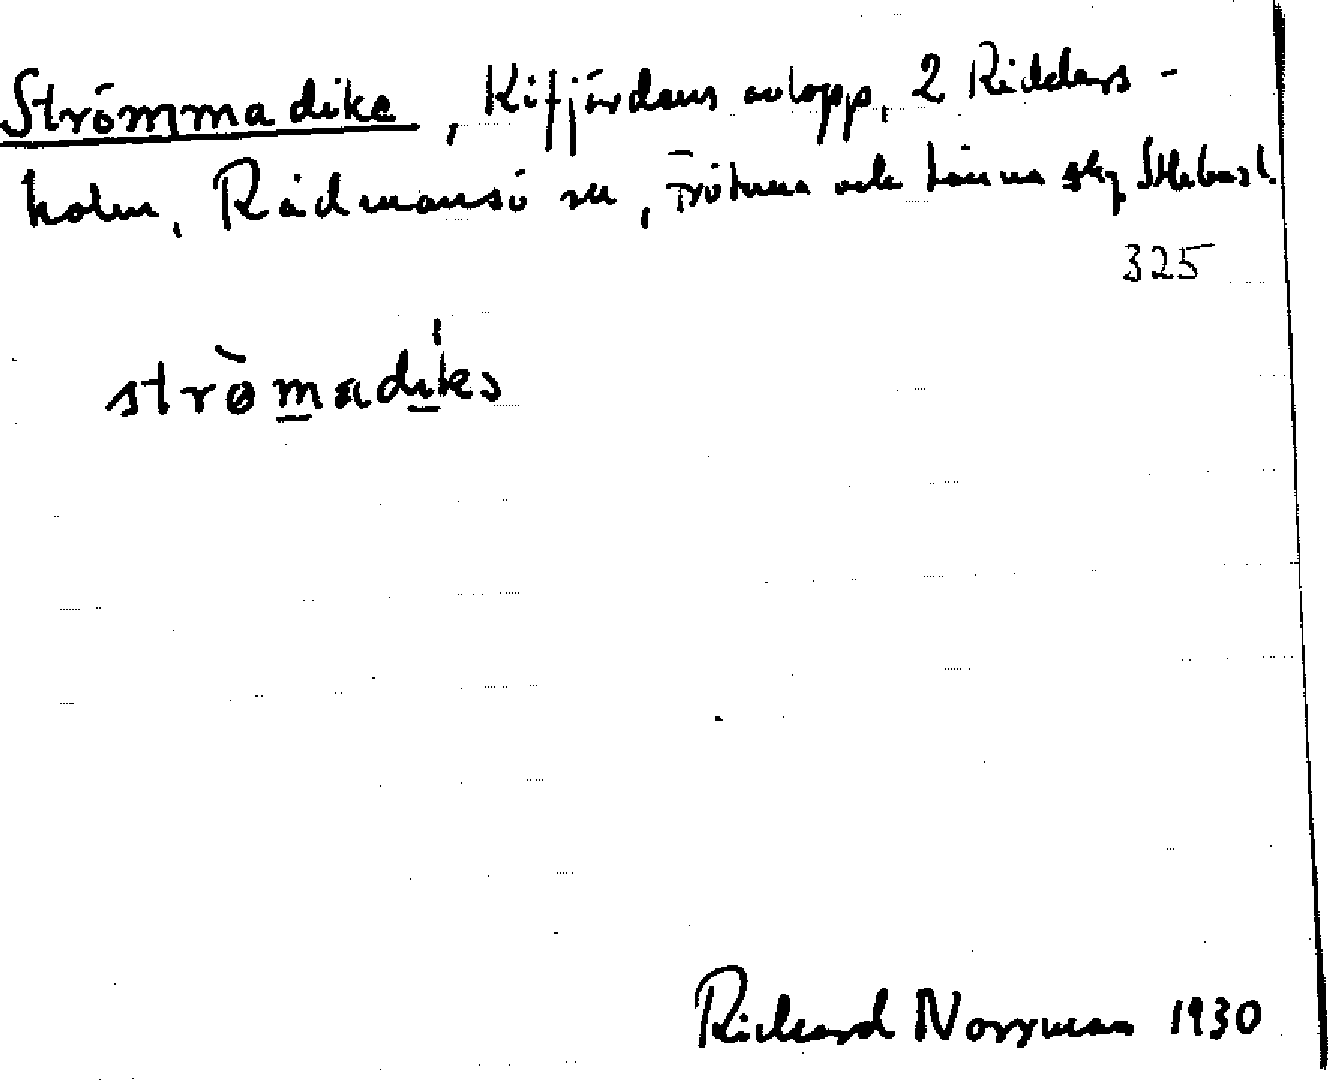 Strömmadike, Kifjärdens avlopp, 2 Ridders-
holm, Rådmansö sn, Frötuna och Länna skg Sthlms l.
325
strömadikə
Rickard Norrman 1930